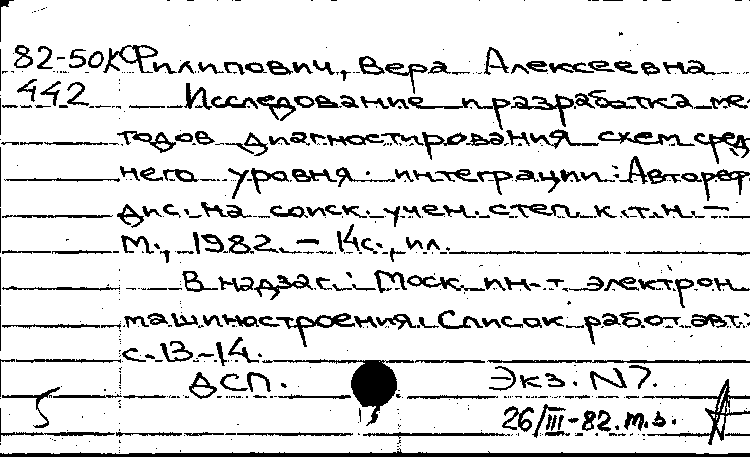 82-50К Филипович, Вера Алексеевна
442 Исследование и разработка ме-
тодов диагностирования схем сред
него уровня интеграции: Автореф
дис. на соиск. учен. степ. к.т.н. —
М., 1982. — 14с., ил.
В надзаг.: Моск. ин-т электрон
машиностроения. Список работ авт.:
с. 13-14.
ДСП. Экз. N7.
5 26/III-82. т.з.